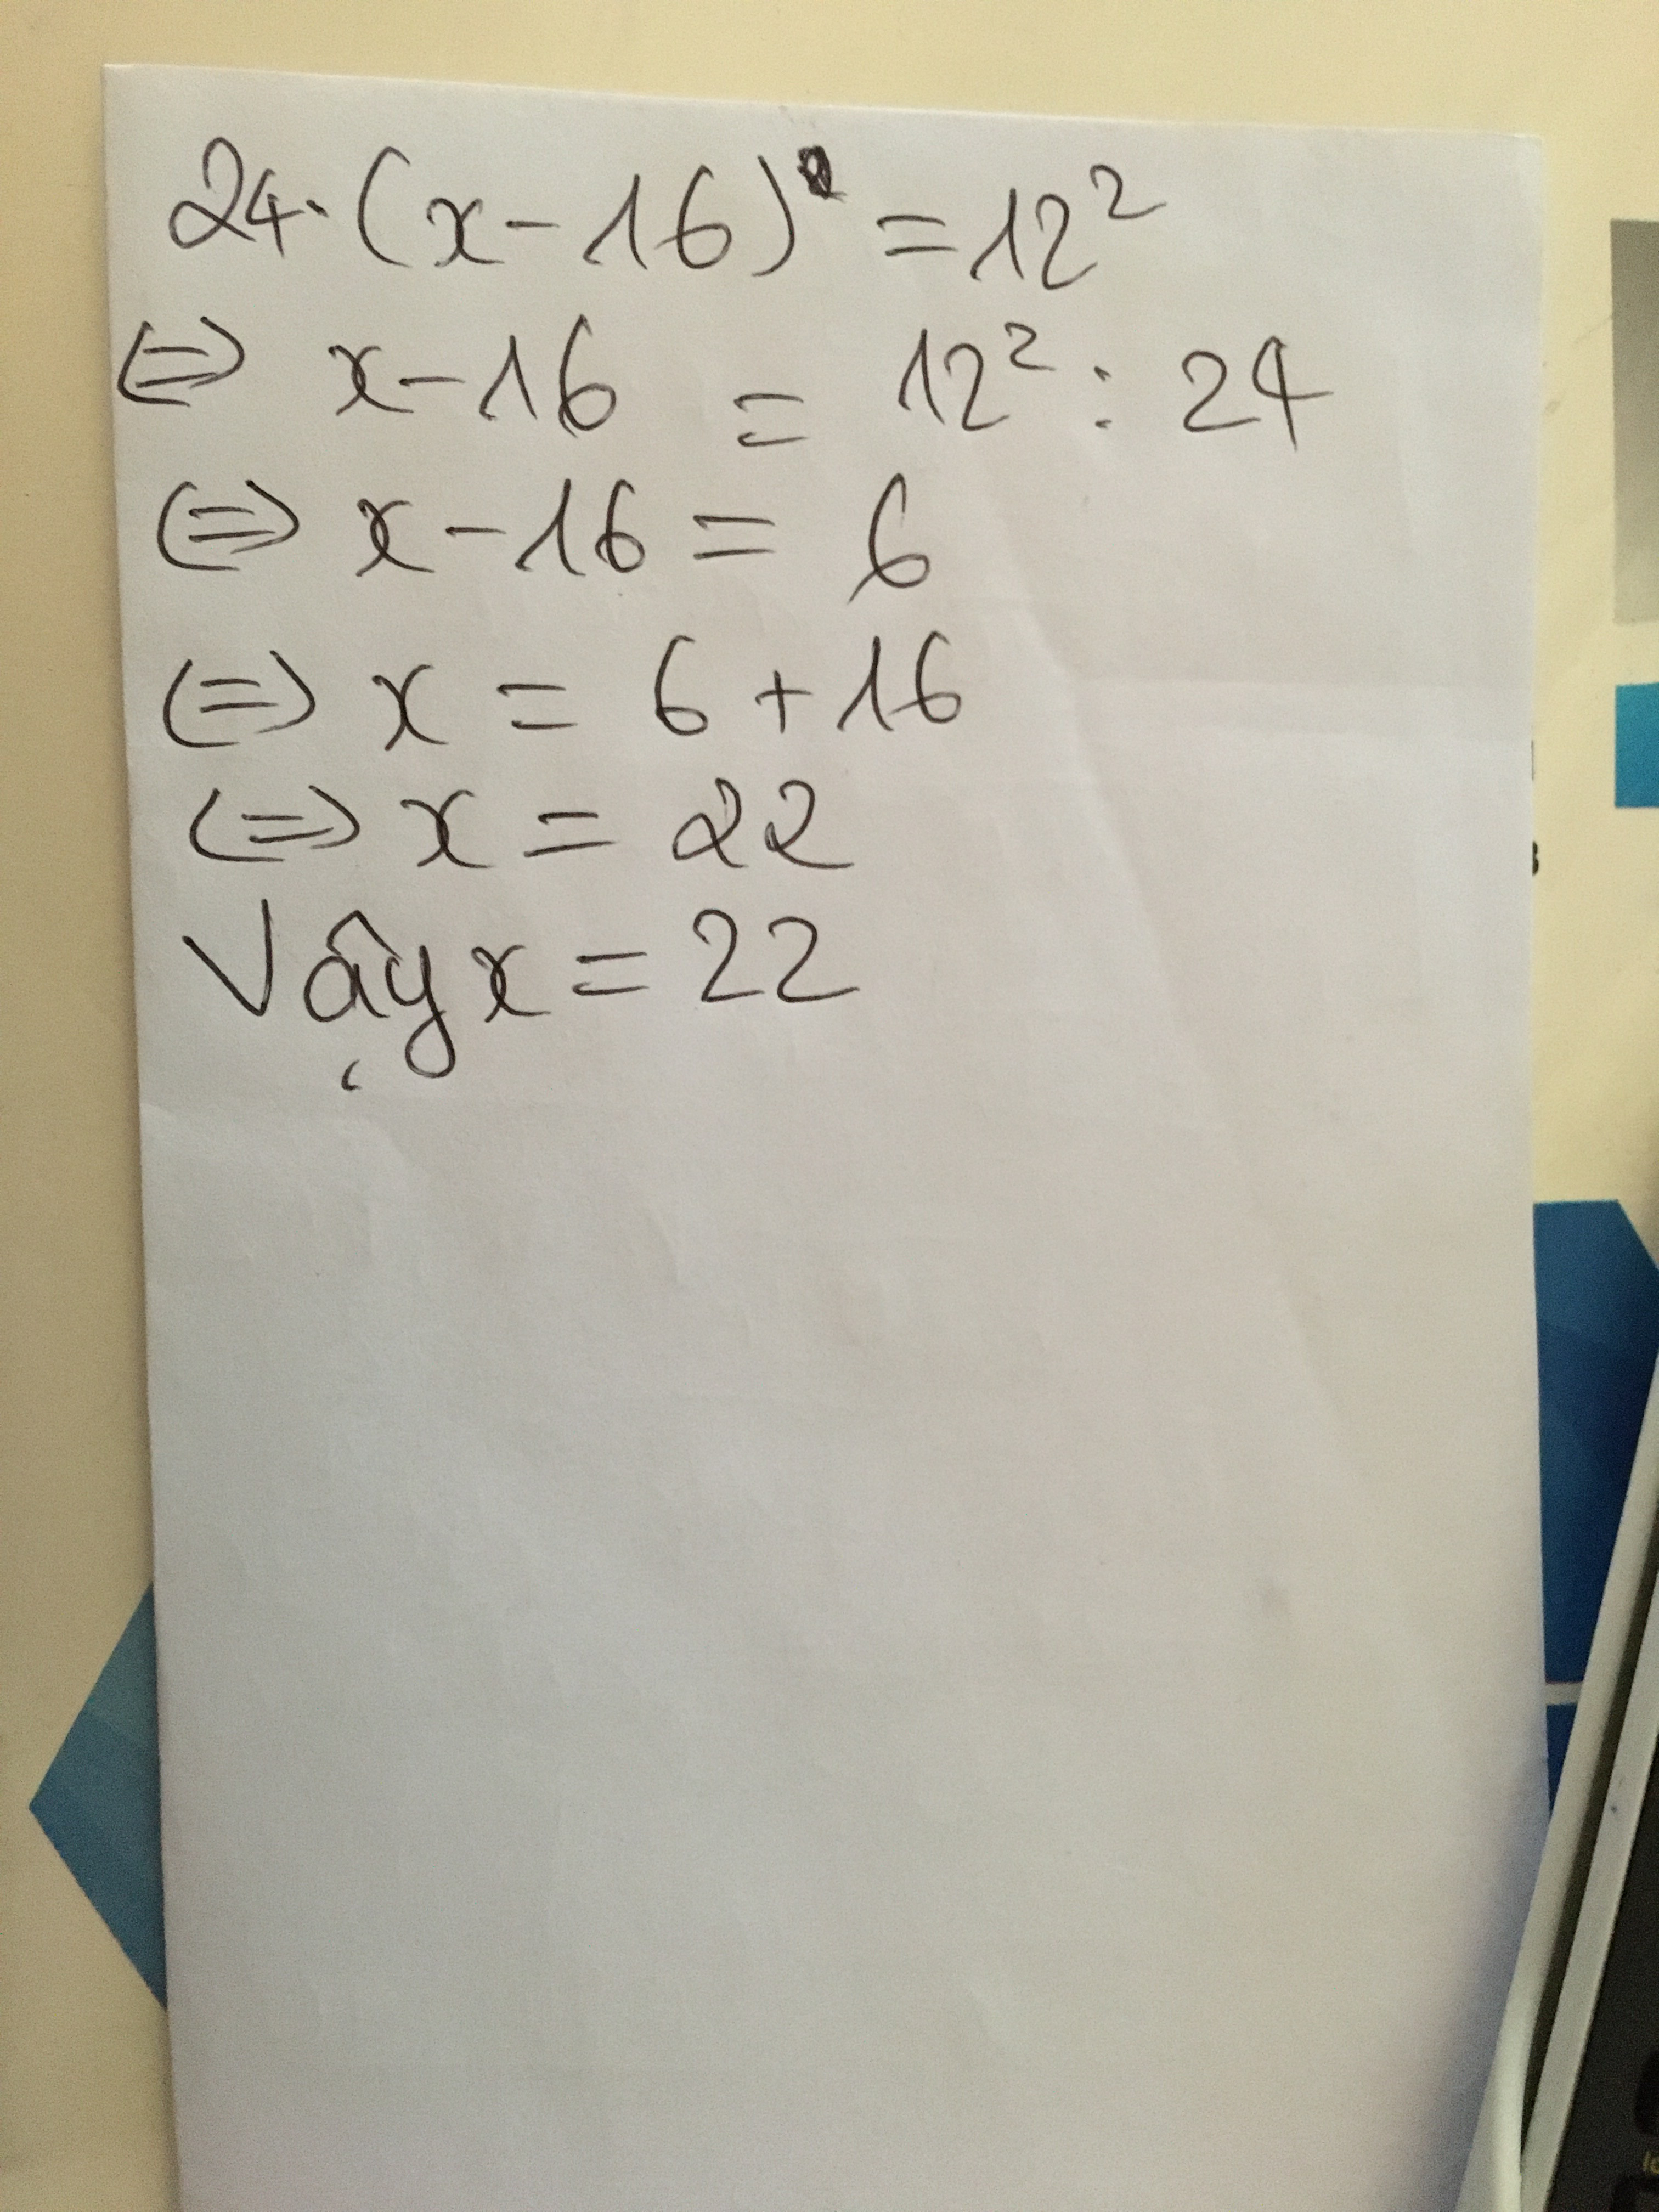 24.(x-16) = 12²
⇔ x-16 = 12² : 24
⇔ x-16 = 6
⇔ x = 6 + 16
⇔ x = 22
Vậy x = 22